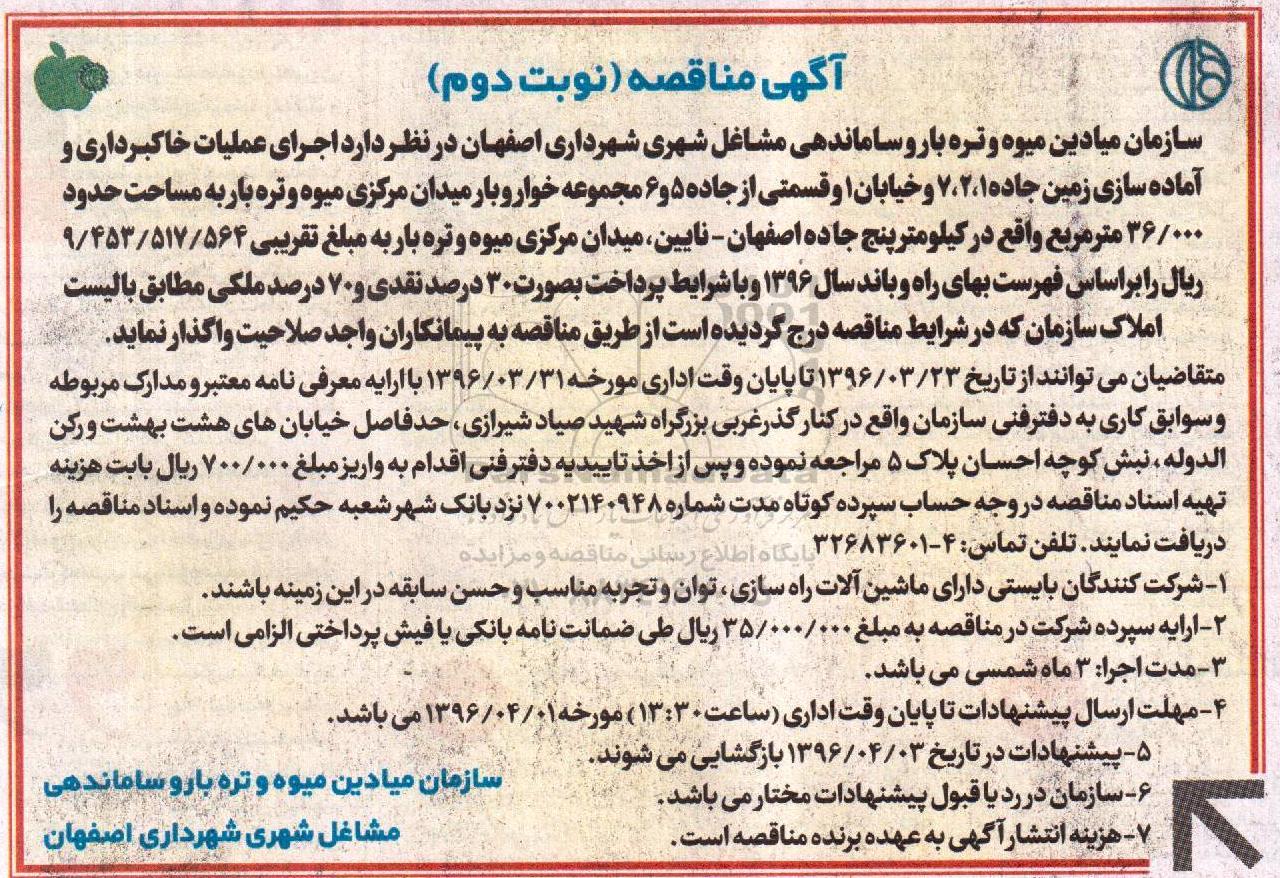 آگهی مناقصه (نوبت دوم)
سازمان میادین میوه و تره بار و ساماندهی مشاغل شهری شهرداری اصفهان در نظر دارد اجرای عملیات خاکبرداری و
آماده سازی زمین جاده ۷،۲،۱ و خیابان ۱ و قسمتی از جاده ۵ و ۶ مجموعه خوار و بار میدان مرکزی میوه و تره بار به مساحت حدود
۳۶/۰۰۰ مترمربع واقع در کیلومتر پنج جاده اصفهان - نایین، میدان مرکزی میوه و تره بار به مبلغ تقریبی ۹/۴۵۳/۵۱۷/۵۶۴
ریال را براساس فهرست بهای راه و باند سال ۱۳۹۶ و با شرایط پرداخت بصورت ۳۰ درصد نقدی و ۷۰ درصد ملکی مطابق با لیست
املاک سازمان که در شرایط مناقصه درج گردیده است از طریق مناقصه به پیمانکاران واجد صلاحیت واگذار نماید.
متقاضیان می توانند از تاریخ ۱۳۹۶/۰۳/۲۳ تا پایان وقت اداری مورخه ۱۳۹۶/۰۳/۳۱ با ارایه معرفی نامه معتبر و مدارک مربوطه
و سوابق کاری به دفترفنی سازمان واقع در کنار گذر غربی بزرگراه شهید صیاد شیرازی، حدفاصل خیابان های هشت بهشت و رکن
الدوله، نبش کوچه احسان پلاک ۵ مراجعه نموده و پس از اخذ تاییدیه دفترفنی اقدام به واریز مبلغ ۷۰۰/۰۰۰ ریال بابت هزینه
تهیه اسناد مناقصه در وجه حساب سپرده کوتاه مدت شماره ۷۰۰۲۱۴۰۹۴۸ نزد بانک شهر شعبه حکیم نموده و اسناد مناقصه را
دریافت نمایند. تلفن تماس: ۴-۳۲۶۸۳۶۰۱
۱-شرکت کنندگان بایستی دارای ماشین آلات راه سازی، توان و تجربه مناسب و حسن سابقه در این زمینه باشند.
۲-ارایه سپرده شرکت در مناقصه به مبلغ ۳۵/۰۰۰/۰۰۰ ریال طی ضمانت نامه بانکی یا فیش پرداختی الزامی است.
۳-مدت اجرا: ۳ ماه شمسی می باشد.
۴-مهلت ارسال پیشنهادات تا پایان وقت اداری (ساعت ۱۳:۳۰) مورخه ۱۳۹۶/۰۴/۰۱ می باشد.
۵-پیشنهادات در تاریخ ۱۳۹۶/۰۴/۰۳ بازگشایی می شوند.
۶-سازمان در رد یا قبول پیشنهادات مختار می باشد.
۷-هزینه انتشار آگهی به عهده برنده مناقصه است.
سازمان میادین میوه و تره بار و ساماندهی
مشاغل شهری شهرداری اصفهان
ParsNamadData
پایگاه اطلاع رسانی مناقصه و مزایده